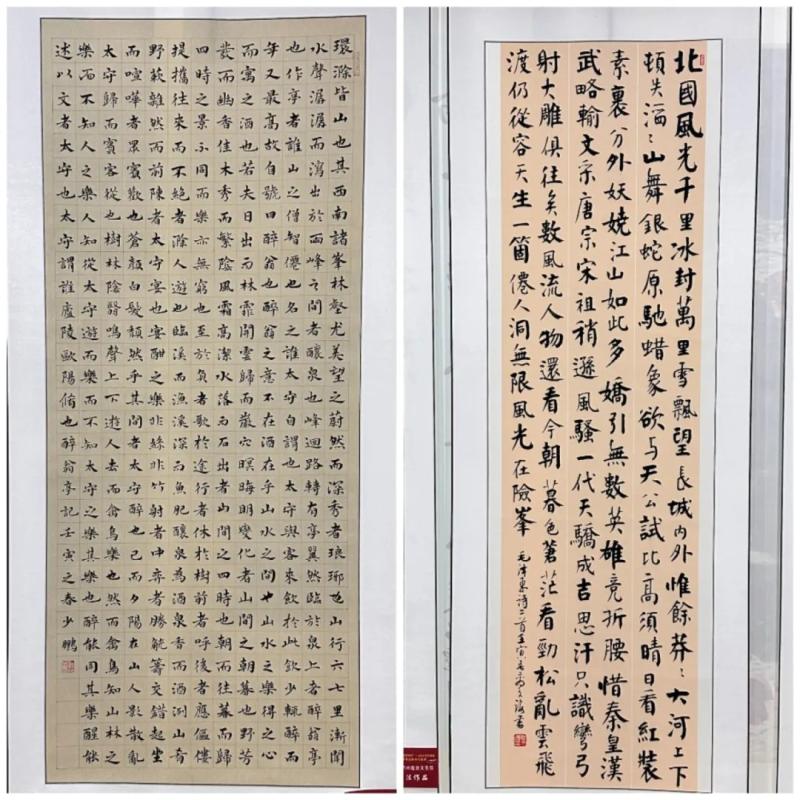 環滁皆山也其西南諸峯林壑尤美望之蔚然而深秀者琅琊也山行六七里漸聞
水聲潺潺而瀉出於兩峰之間者釀泉也峰迴路轉有亭翼然臨於泉上者醉翁亭
也作亭者誰山之僧智僊也名之誰太守自謂也太守與客來飲於此飲少輒醉而
年又最高故自號曰醉翁也醉翁之意不在酒在乎山水之間也山水之樂得之心
而寓之酒也若夫日出而林霏開雲歸而巖穴暝晦明變化者山間之朝暮也野芳
發而幽香佳木秀而繁陰風霜高潔水落而石出者山間之四時也朝而往暮而歸
四時之景不同而樂亦無窮也至於負者歌於途行者休於樹前者呼後者應傴僂
提攜往來而不絕者滁人遊也臨溪而漁溪深而魚肥釀泉為酒泉香而酒洌山肴
野蔌雜然而前陳者太守宴也宴酣之樂非絲非竹射者中弈者勝觥籌交錯起坐
而喧嘩者眾賓歡也蒼顏白髮頹然乎其間者太守醉也已而夕陽在山人影散亂
太守歸而賓客從也樹林陰翳鳴聲上下遊人去而禽鳥樂也然而禽鳥知山林之
樂而不知人之樂人知從太守遊而樂而不知太守之樂其樂也醉能同其樂醒能
述以文者太守也太守謂誰廬陵歐陽脩也醉翁亭記壬寅之春少鵬
北國風光千里冰封萬里雪飄望長城內外惟餘莽〻大河上下
頓失滔〻山舞銀蛇原馳蜡象欲与天公試比高須晴日看紅裝
素裹分外妖嬈江山如此多嬌引無數英雄竟折腰惜秦皇漢
武略輸文采唐宗宋祖稍遜風騷一代天驕成吉思汗只識彎弓
射大雕俱往矣數風流人物還看今朝 暮色蒼茫看勁松亂雲飛
渡仍從容天生一箇僊人洞無限風光在險峯 毛澤東詩二首壬寅 書
法作品